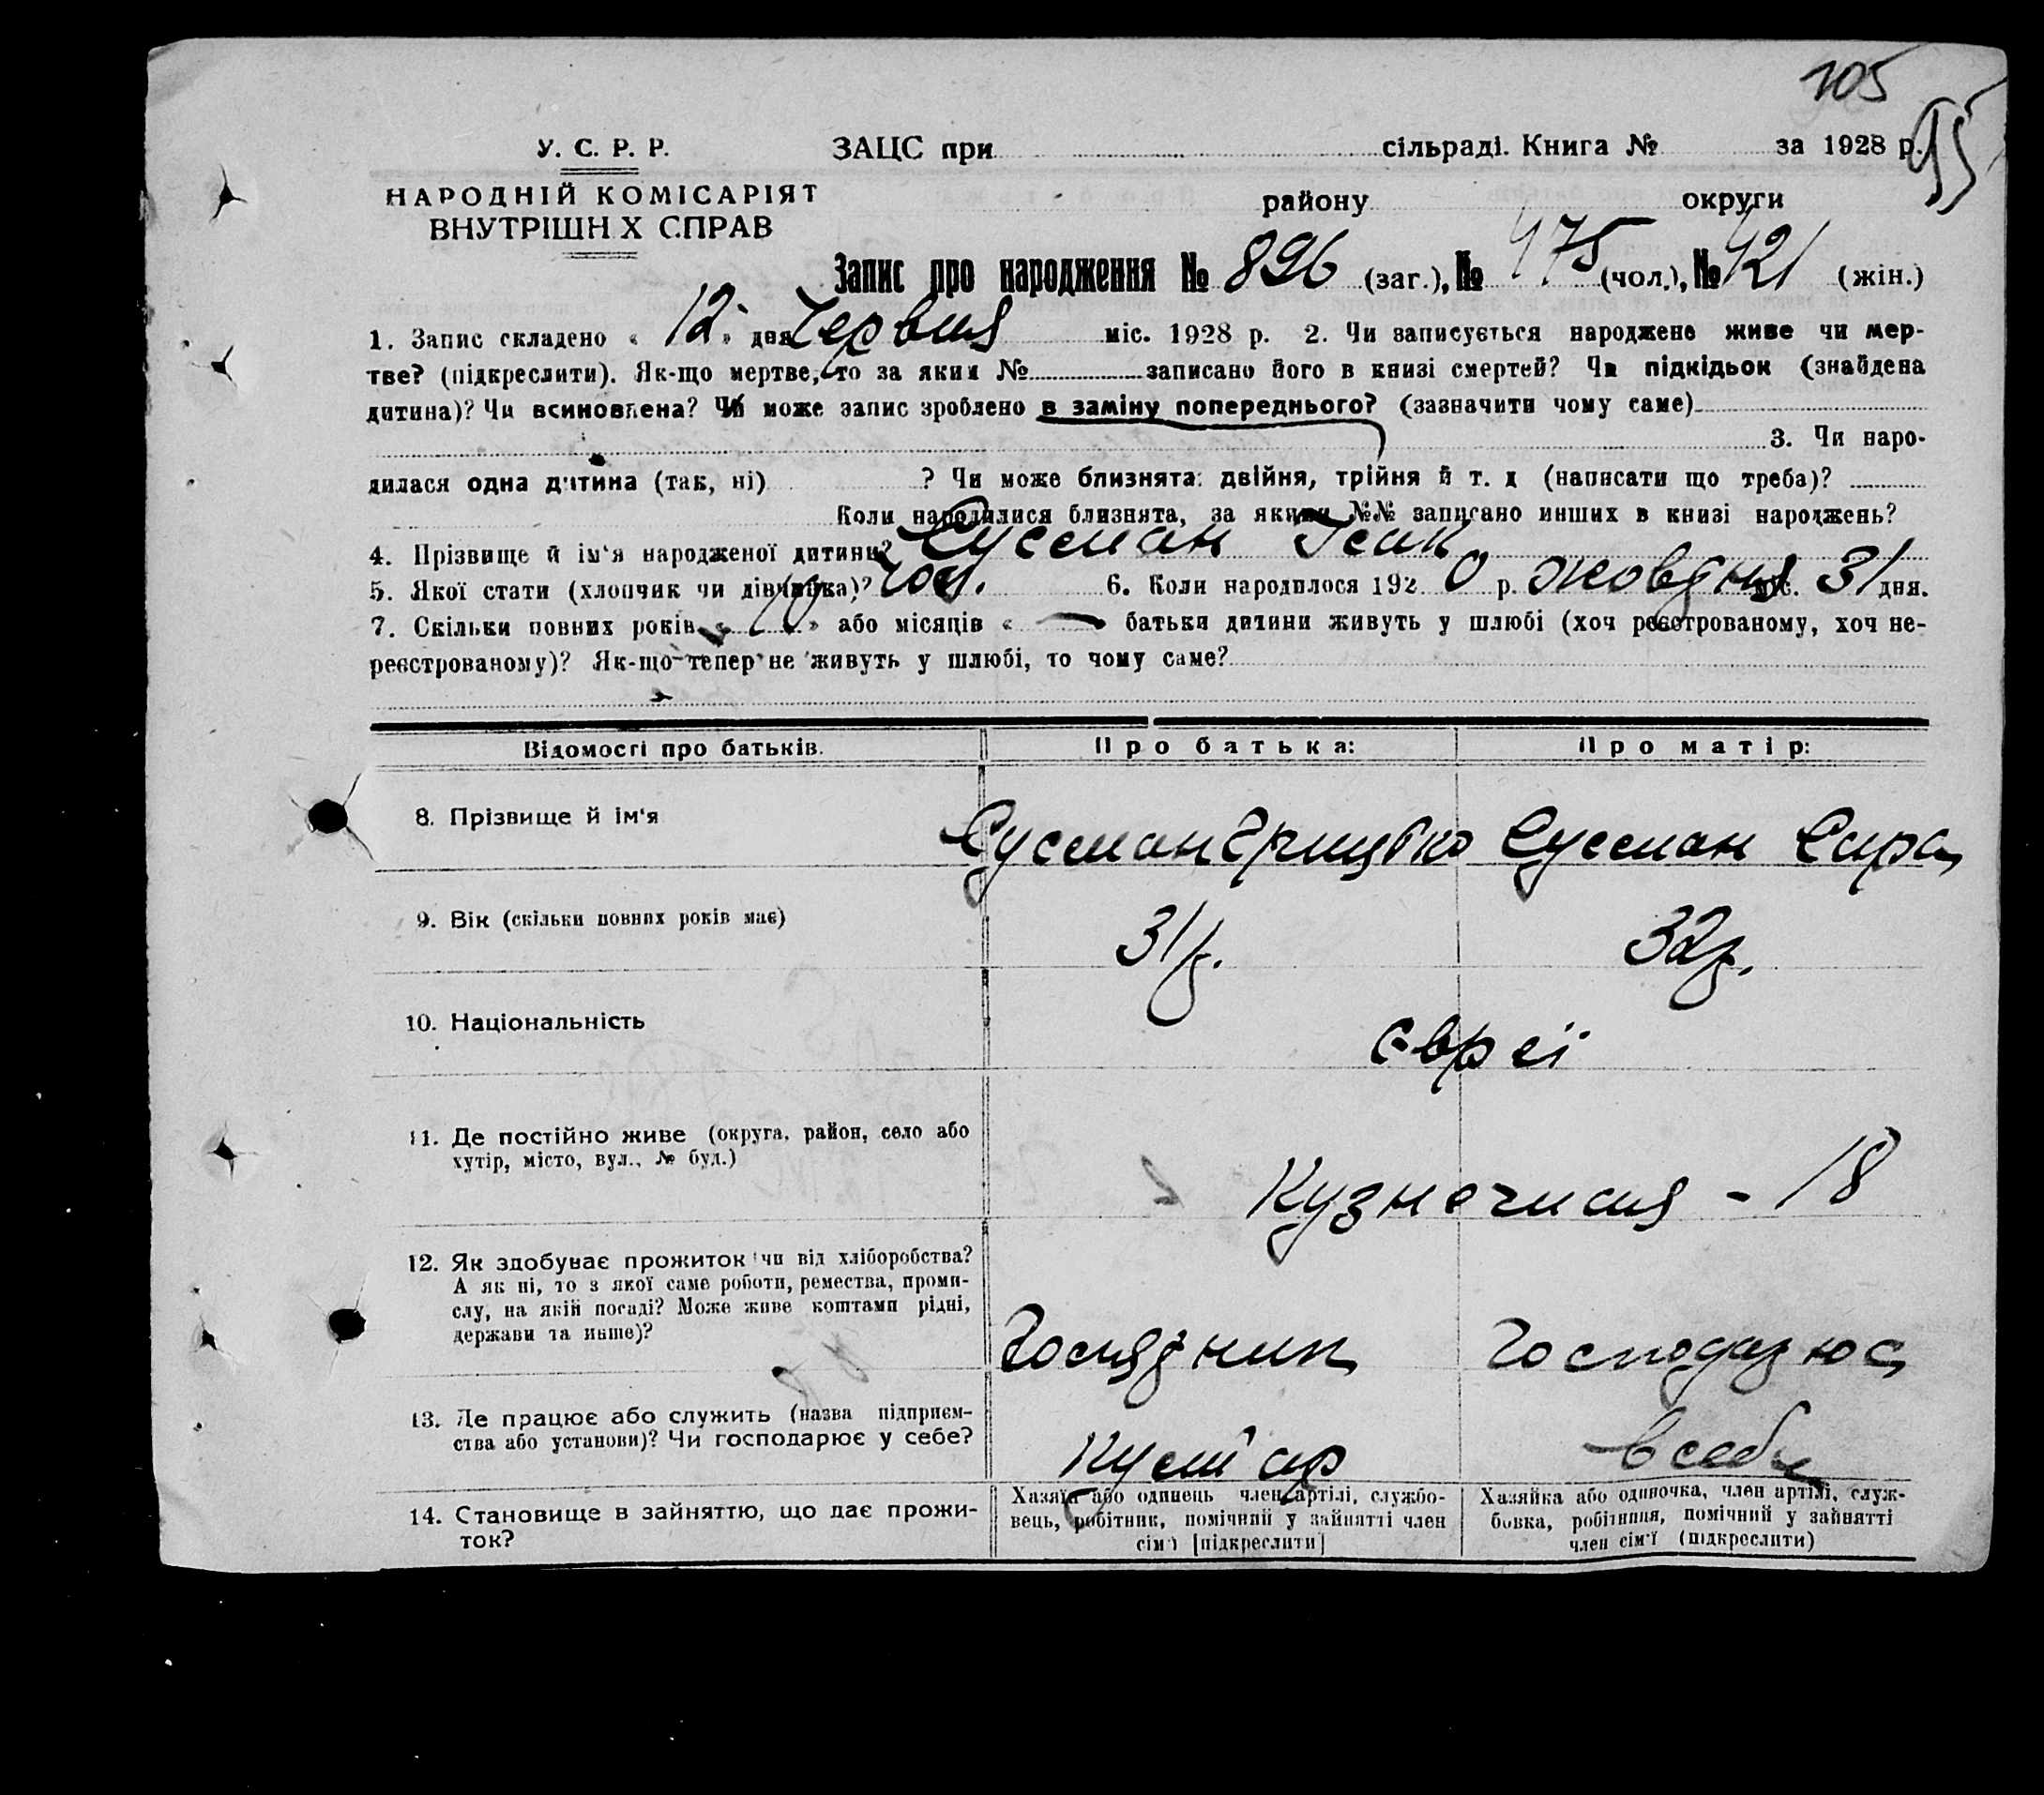 105
95
У. С. Р. Р. ЗАЦС при сільраді. Книга № за 1928 р.
НАРОДНІЙ КОМІСАРІЯТ району округи
ВНУТРІШН Х СПРАВ
Запис про народження № 896 (заг.), № 475 (чол.), № 421 (жін.)
1. Запис складено « 12 » дня Червня міс. 1928 р. 2. Чи записується народжене живе чи мер-
тве? (підкреслити). Як-що мертве, то за яким № записано його в книзі смертей? Чи підкідьок (знайдена
дитина)? Чи всиновлена? Чи може запис зроблено в заміну попереднього? (зазначити чому саме)
3. Чи наро-
дилася одна дитина (так, ні) ? Чи може близнята: двійня, трійня й т. д (написати що треба)?
Коли народилися близнята, за якими №№ записано инших в книзі народжень?
4. Прізвище й ім‘я народженої дитини? Сусман Ісак
5. Якої стати (хлопчик чи дівчинка)? чол. 6. Коли народилося 192 0 р. жовтня міс. 31 дня.
7. Скільки повних років « 10 » або місяців « — » батьки дитини живуть у шлюбі (хоч реєстрованому, хоч не-
реєстрованому)? Як-що тепер не живуть у шлюбі, то чому саме?
Відомості про батьків. Про батька: Про матір:
8. Прізвище й ім‘я Сусман Грицько Сусман Сира
9. Вік (скільки повних років має) 31 р. 32 р.
10. Національність євреї
11. Де постійно живе (округа, район, село або
хутір, місто, вул., № буд.) Кузнечная - 18
12. Як здобуває прожиток чи від хліборобства?
А як ні, то з якої саме роботи, ремества, проми-
слу, на якій посаді? Може живе коштами рідні,
держави та инше)? Господарює
13. Де працює або служить (назва підприєм-
ства або установи)? Чи господарює у себе? Кустар в себе
14. Становище в зайняттю, що дає прожи-
ток?
Хазяїн або одинець член артілі, службо-
вець, робітник, помічний у зайнятті член
сім'ї [підкреслити]
Хазяйка або одиночка, член артілі, служ-
бовка, робітниця, помічний у зайнятті
член сім'ї (підкреслити)